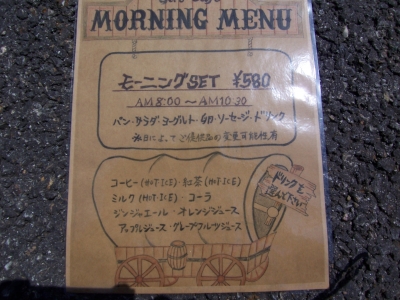 MORNING MENU
モーニングSET ¥580
AM8:00〜AM10:30
パン・サラダ・ヨーグルト・卵・ソーセージ・ドリンク
コーヒー(HOT・ICE)・紅茶(HOT・ICE)
ミルク(HOT・ICE)・コーラ
ジンジャエール・オレンジジュース
アップルジュース・グレープフルーツジュース
ドリンクを
選んで下さい